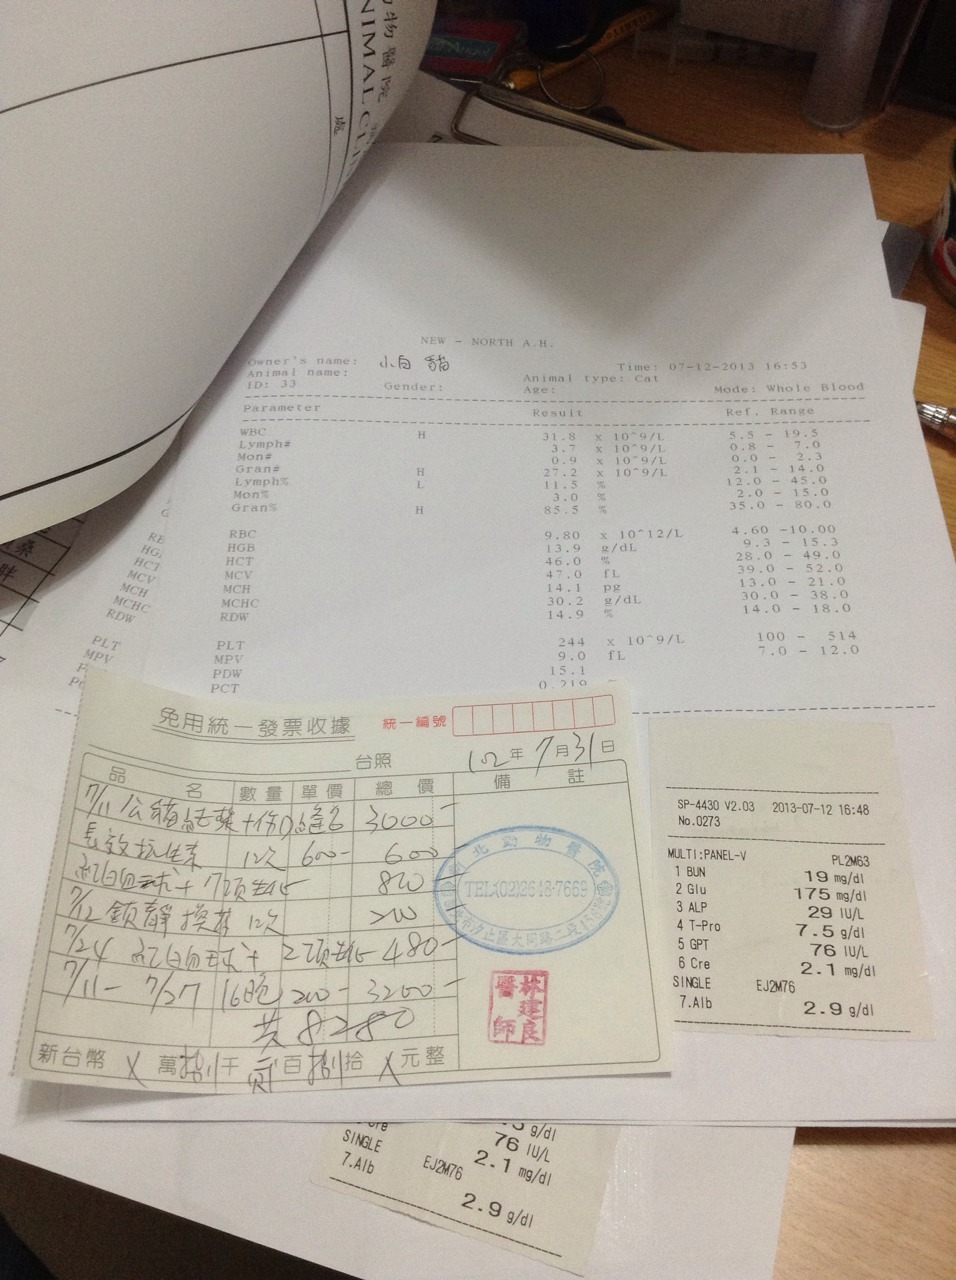 物醫院
NIMAL CLI
NEW - NORTH A.H.
Owner's name: 小白 貓 Time: 07-12-2013 16:53
Animal name: Animal type: Cat
ID: 33 Gender: Age: Mode: Whole Blood
Parameter Result Ref. Range
WBC H 31.8 x 10^9/L 5.5 - 19.5
Lymph# 3.7 x 10^9/L 0.8 - 7.0
Mon# 0.9 x 10^9/L 0.0 - 2.3
Gran# H 27.2 x 10^9/L 2.1 - 14.0
Lymph% L 11.5 % 12.0 - 45.0
Mon% 3.0 % 2.0 - 15.0
Gran% H 85.5 % 35.0 - 80.0
RBC 9.80 x 10^12/L 4.60 -10.00
HGB 13.9 g/dL 9.3 - 15.3
HCT 46.0 % 28.0 - 49.0
MCV 47.0 fL 39.0 - 52.0
MCH 14.1 pg 13.0 - 21.0
MCHC 30.2 g/dL 30.0 - 38.0
RDW 14.9 % 14.0 - 18.0
PLT 244 x 10^9/L 100 - 514
MPV 9.0 fL 7.0 - 12.0
PDW 15.1
PCT 0.219
HCT
MCV
MCH
MCHC
RDW
PLT
MPV
免用統一發票收據 統一編號
台照 102年7月31日
品名 數量 單價 總價 備註
7/11 公貓結紮+傷口縫合 3000-
長效抗生素 1次 600- 600
紅白血球+7項生化 800
7/12 鎮靜換藥 1次 200
7/24 紅白血球+2項生化 480-
7/11- 7/27 16包 200- 3200-
共8280
新台幣 X 萬 捌 千 貳 百 捌 拾 X 元整
北動物醫院
TEL:(02)2648-7669
汐止區大同路二段
林建良
醫師
SP-4430 V2.03 2013-07-12 16:48
No.0273
MULTI:PANEL-V PL2M63
1 BUN 19 mg/dl
2 Glu 175 mg/dl
3 ALP 29 IU/L
4 T-Pro 7.5 g/dl
5 GPT 76 IU/L
6 Cre 2.1 mg/dl
SINGLE EJ2M76
7.Alb 2.9 g/dl
g/dl
76 IU/L
SINGLE 2.1 mg/dl
7.Alb EJ2M76
2.9 g/dl